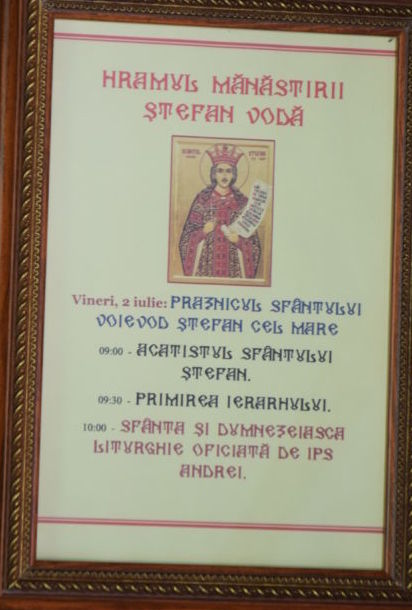 HRAMUL MĂNĂSTIRII
ȘTEFAN VODĂ
Vineri, 2 iulie: PRAZNICUL SFÂNTULUI
VOIEVOD ȘTEFAN CEL MARE
09:00 - ACATISTUL SFÂNTULUI
ȘTEFAN.
09:30 - PRIMIREA IERARHULUI.
10:00 - SFÂNTA ȘI DUMNEZEIASCA
LITURGHIE OFICIATĂ DE IPS
ANDREI.